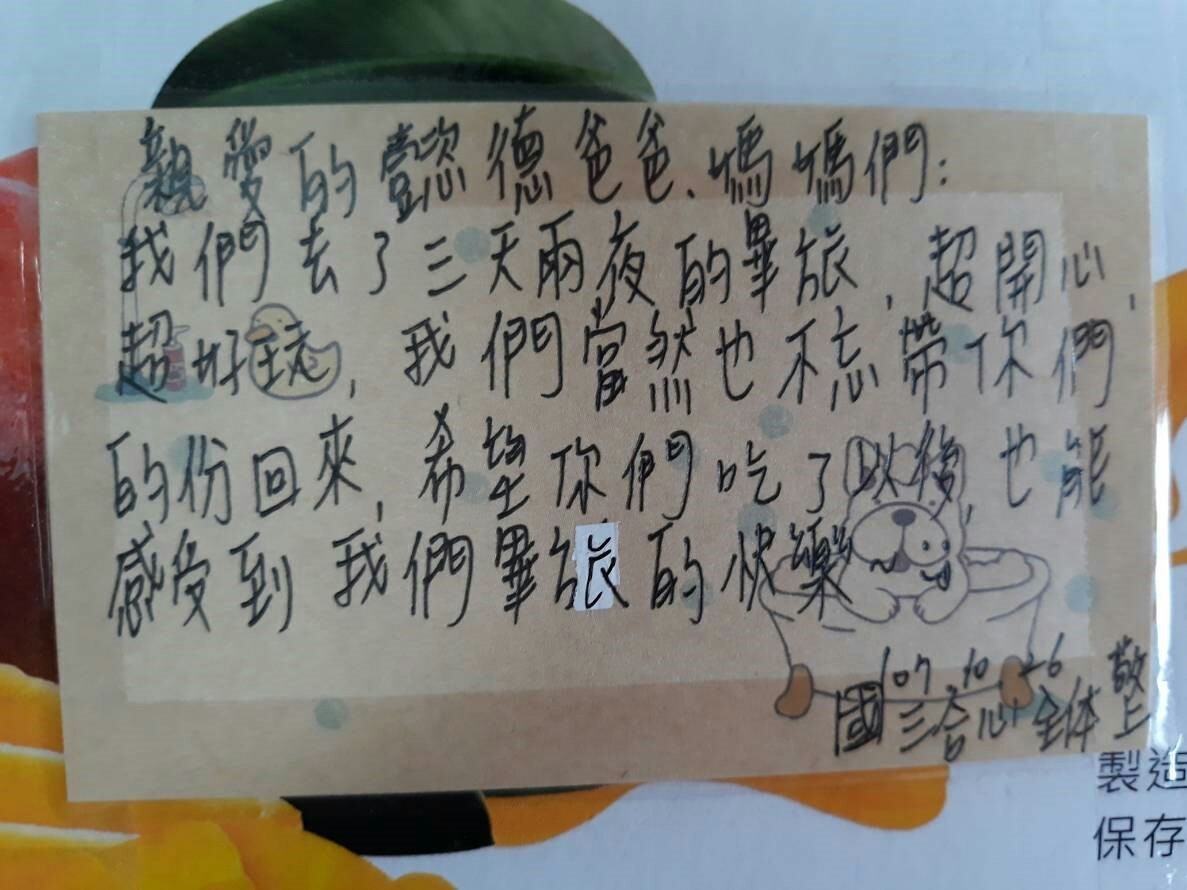 親愛的懿德爸爸、媽媽們：
我們去了三天兩夜的畢旅，超開心，
超好玩，我們當然也不忘帶你們
的份回來，希望你們吃了以後，也能
感受到我們畢旅的快樂
107.10.26
國三合心全体敬上
製造
保存